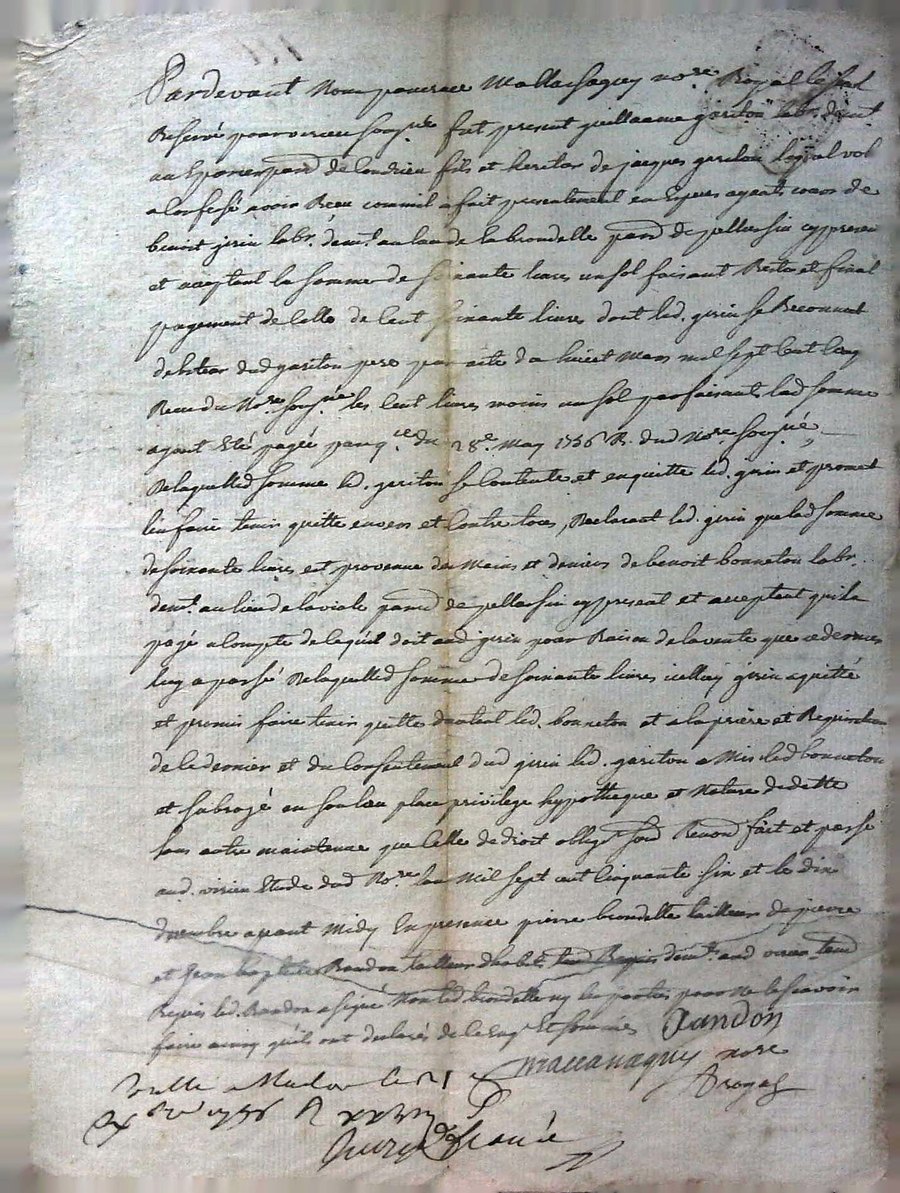 Pardevant Nous
Reservé pour virieu soussigné fut present guillaume gariton labr. demt.
au paroisse de Condrieu fils et heritier de jacques gariton lequel
a confessé avoir Receu comme il a fait presentement en Especes ayants cours de
benoit girin labr. demt. au lieu de la brondelle paroisse de pellussin cy present
et acceptant la somme de soixante livres un sol faisant Reste et final
payement de celle de Cent soixante livres dont led. girin se Reconnut
debiteur dud gariton pere par acte du huict Mars mil sept Cent
Receu du Nore. les Cent livres moins un sol parfaisant lad somme
ayant eté payée par du 28e. May 1756 R. dud Nore.
De laquelle somme led. gariton se Contente et en quitte led. girin et promet
l'en faire tenir quitte envers et Contre tous, Declarant led. girin que lad somme
de soixante livres est provenue des Mains et deniers de benoit bonneton labr.
demt. au lieu de la viale paroisse de pellussin cy present et acceptant qui l'a
payé a Compte de ce qu'il doit aud girin pour Raison de la vente que ce dernier
luy a passé De laquelle somme de soixante livres icelluy girin a quitté
et promis faire tenir quitte d'autant led. bonneton et a la prière et Requisition
de ce dernier et du Consentement dud girin led. gariton a Mis led bonneton
et subrogé en son lieu place privilege hypotheque et Nature de dette
sans autre maintenue que Celle de droit fait et passé
aud. virieu Etude dud Nore. l'an Mil sept cent Cinquante six et le dix
decembre apant Midy En presence pierre brondelle tailleur de pierre
et Jean baptiste Randon tailleur d'habt. demt. aud virieu
Requis led. Randon a signé Non led brondelle ny les parties pour Ne le scavoir
faire ainsy qu'ils ont declarés de ce Enq. Et sommés Randon
nore
Royal
Conlle a le
xbre 1756 R